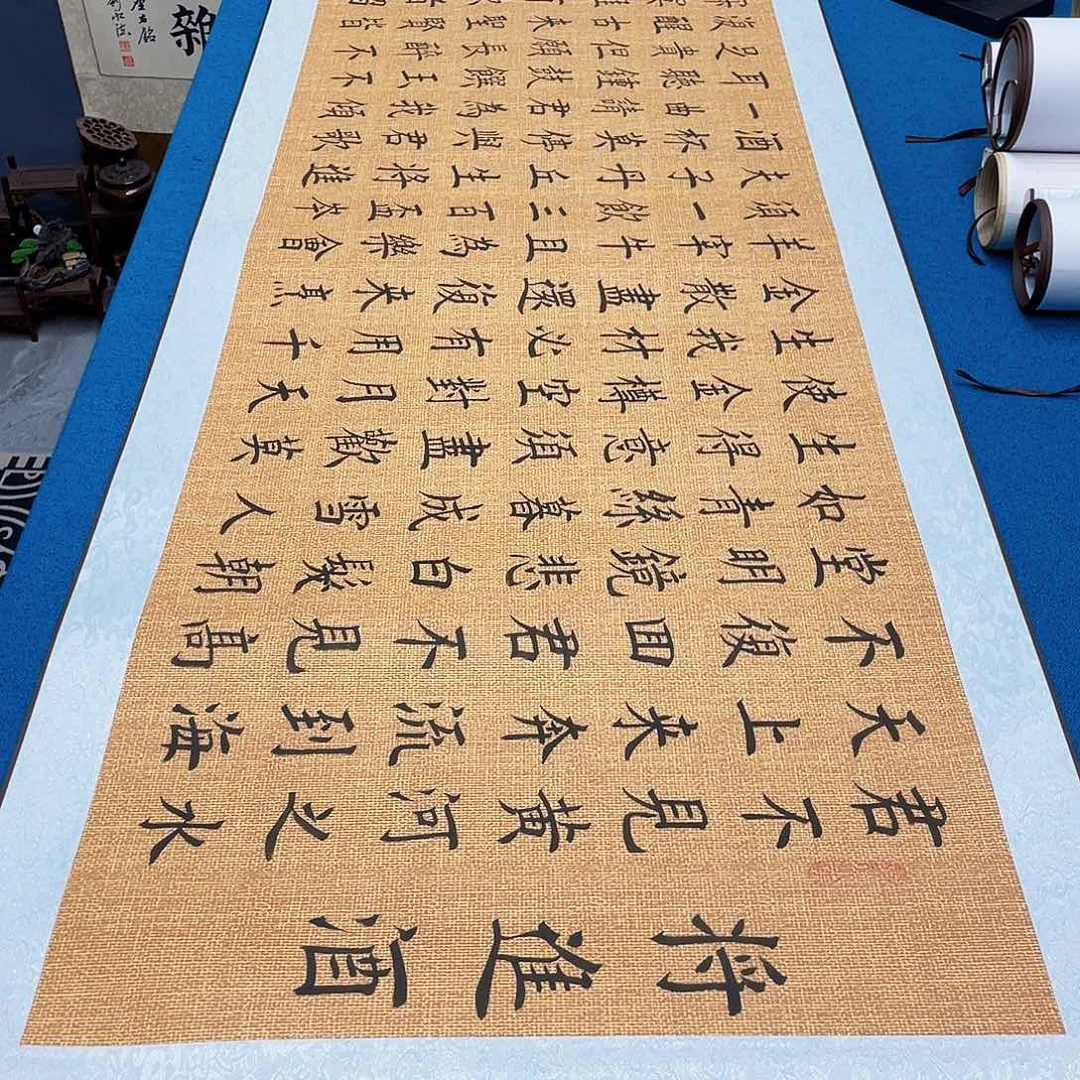 將進酒
君不見黃河之水
天上来奔流到海
不復回君不見高
堂明鏡悲白髮朝
如青絲暮成雪人
生得意須盡歡莫
使金樽空對月天
生我材必有用千
金散盡還復来烹
羊宰牛且為樂會
須一飲三百盃岑
夫子丹丘生將進
酒杯莫停與君歌
一曲請君為我傾
耳聽鐘鼓饌玉不
足貴但願長醉不
復醒古来聖賢皆
雜